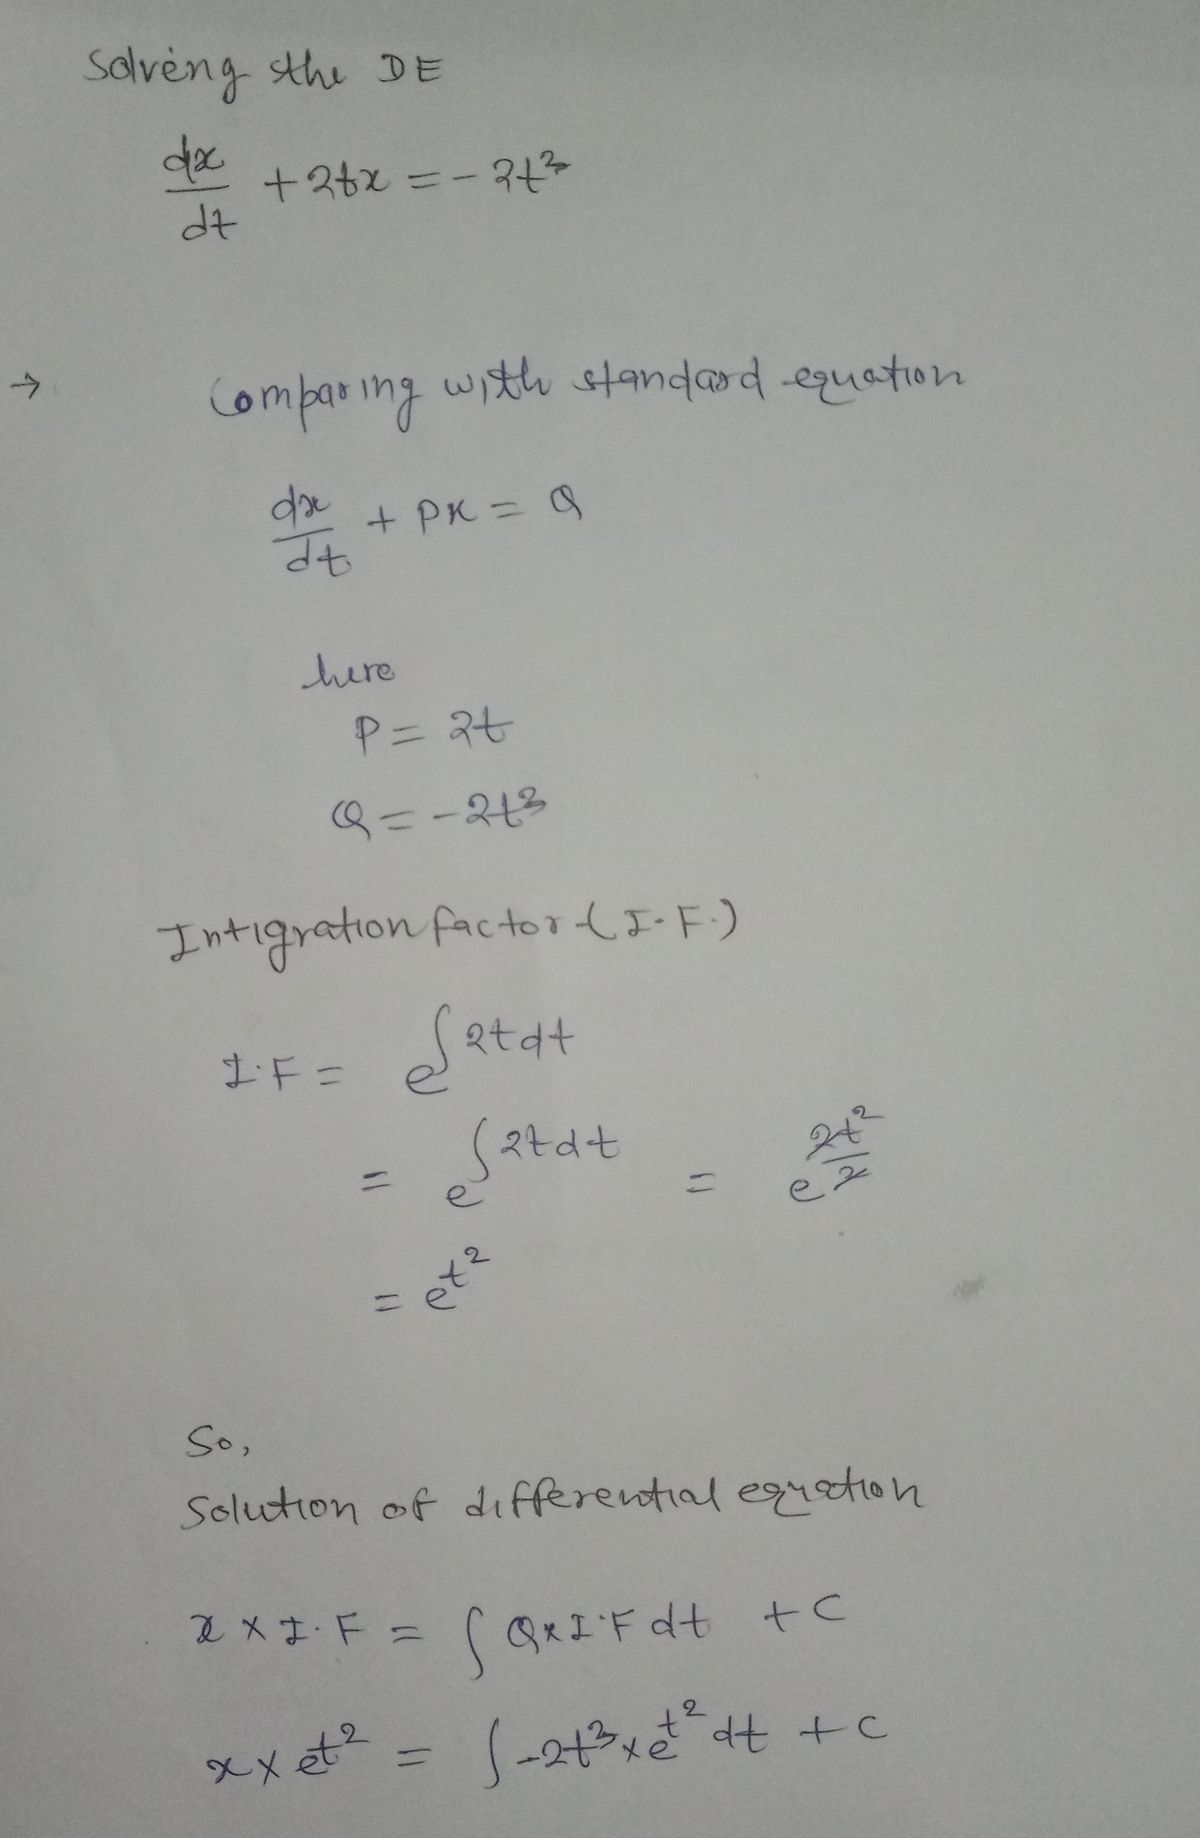 Solving the DE
dx/dt + 2tx = - 2t³
→ Comparing with standard equation
dx/dt + Px = Q
here
P = 2t
Q = - 2t³
Intigration factor (I.F.)
I.F = e^∫2tdt
= e^∫2tdt = e^(2t²/2)
= e^t²
So,
Solution of differential equation
x × I.F = ∫ Q×I.F dt + C
x × e^t² = ∫ -2t³ × e^t² dt + C